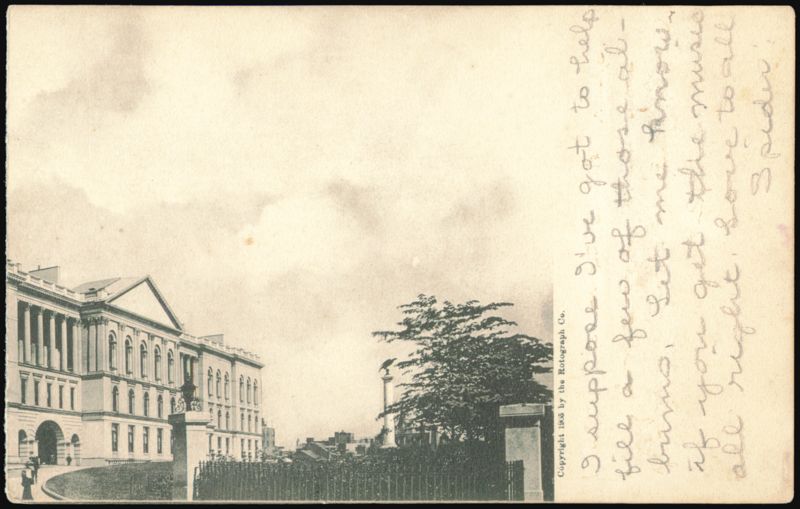 Copyright 1905 by the Rotograph Co.
I suppose I've got to help
fill a few of those al-
bums. Let me know
if you get the music
all right. Love to all